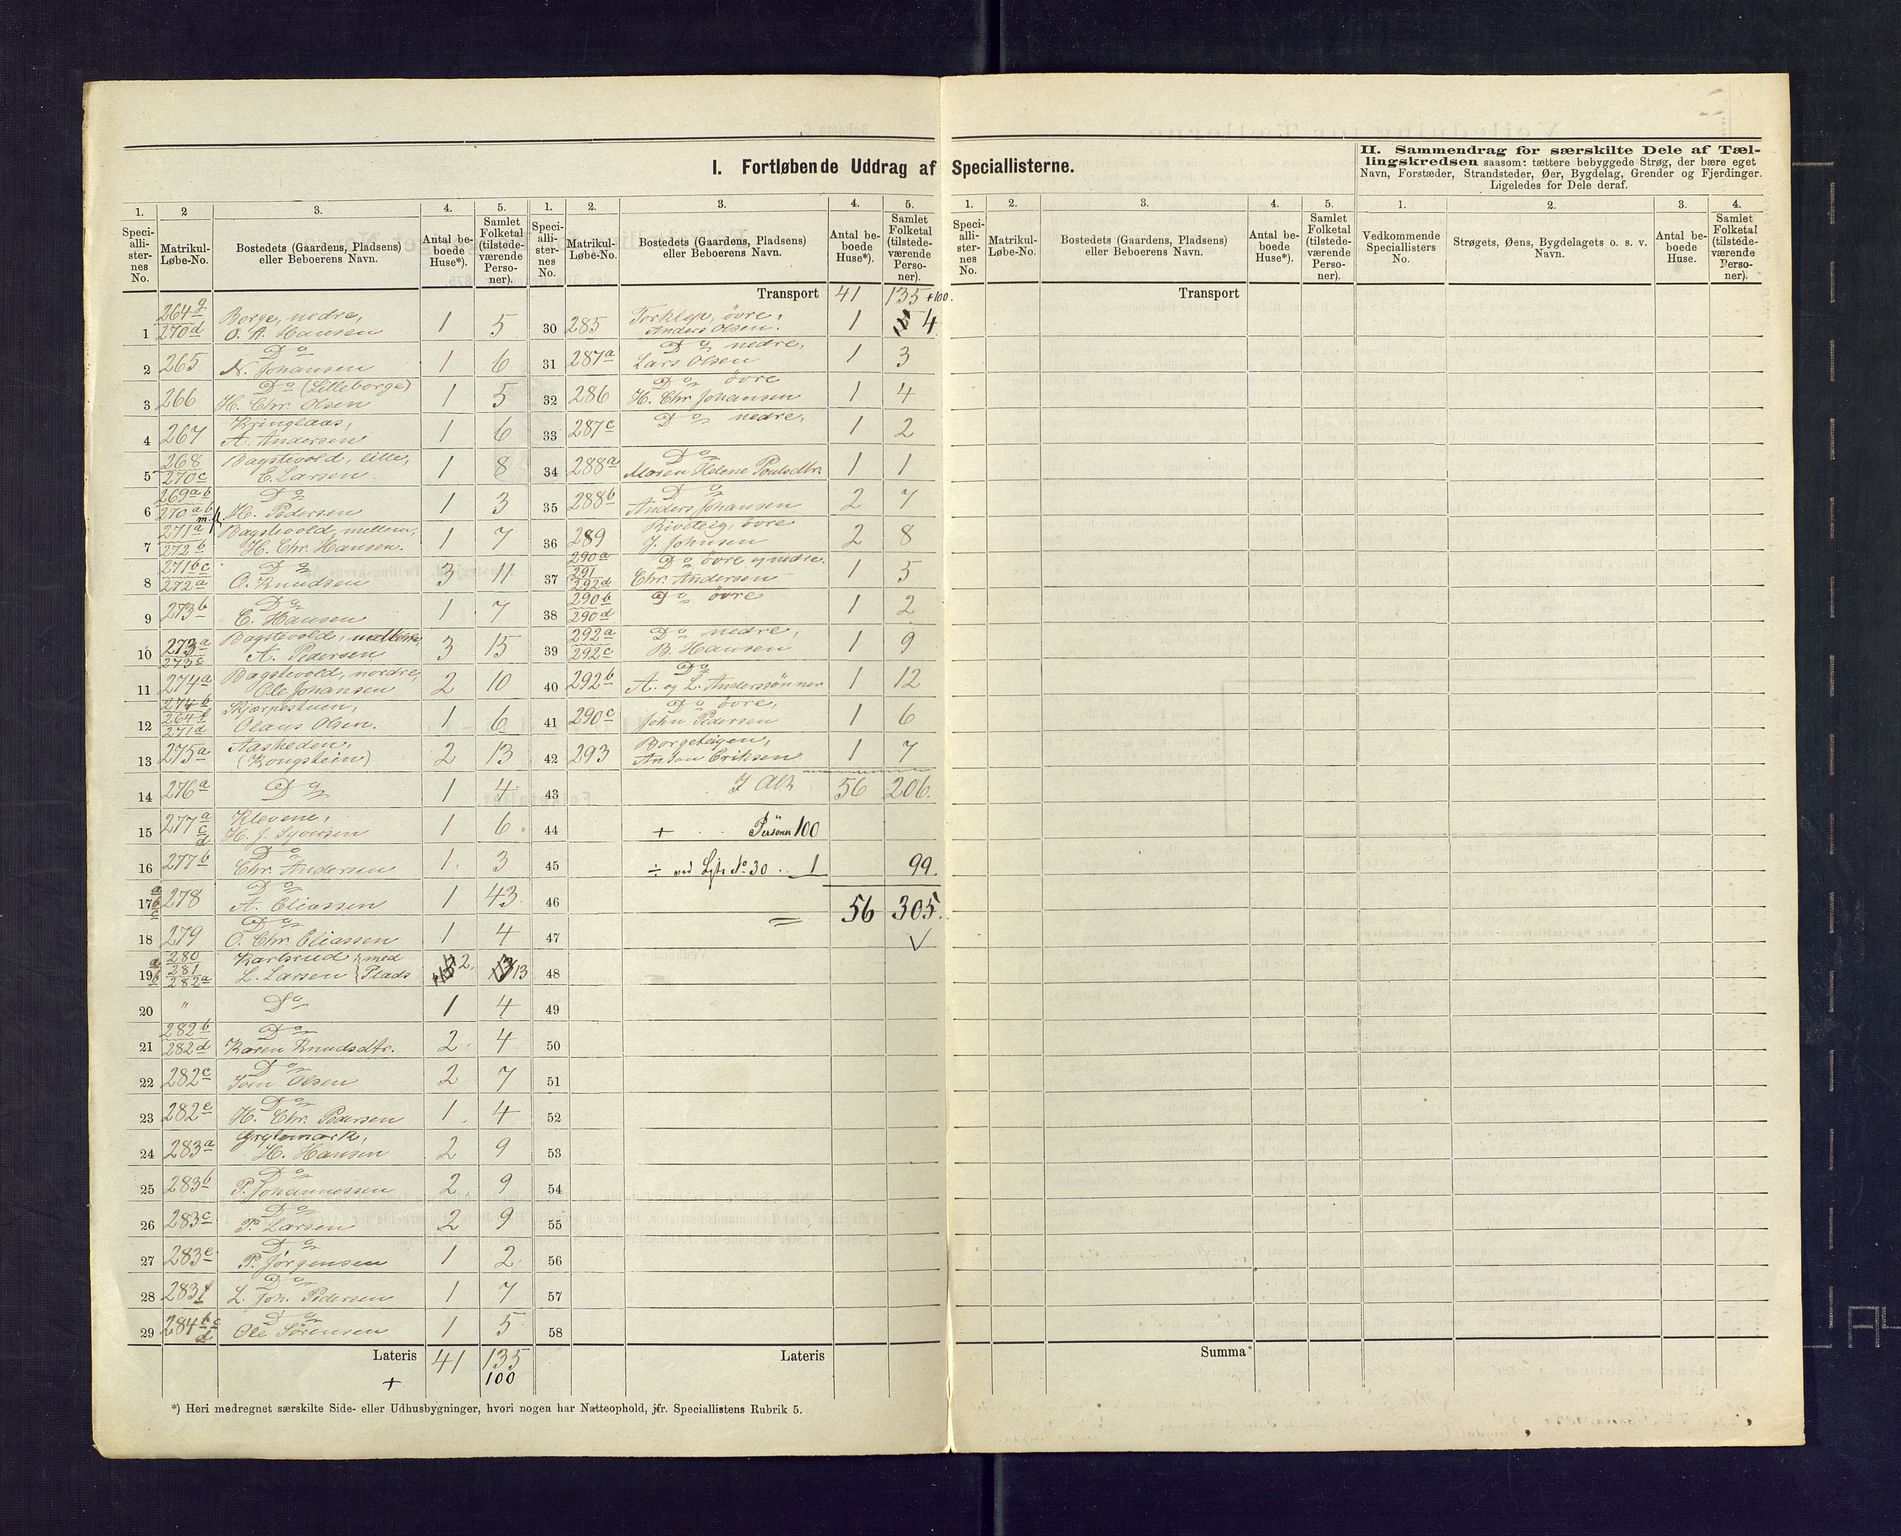 I. Fortløbende Uddrag af Speciallisterne.
II. Sammendrag for særskilte Dele af Tæl-
lingskredsen saasom: tættere bebyggede Strøg, der bære eget
Navn, Forstæder, Strandsteder, Øer, Bygdelag, Grender og Fjerdinger.
Ligeledes for Dele deraf.
1. 2 3. 4. 5.
Speci-allister-nes No. Matrikul-Løbe-No. Bostedets (Gaardens, Pladsens) eller Beboerens Navn. Antal beboede Huse*). Samlet Folketal (tilstedeværende Personer).
1 264g 270d Borge, nedre, O. A. Hansen 1 5
2 265 Do N. Johansen 1 6
3 266 Do (Lilleborge) H. Chr. Olsen 1 5
4 267 Kringlaas, A. Andersen 1 6
5 268 270c Bagstevold, lille, E. Larsen 1 8
6 269ab 270ab Do H. Pedersen 1 3
7 271a 272b Bagstevold, mellem, H. Chr. Hansen. 1 7
8 271bc 272a Do O. Knudsen 3 11
9 273b Do E. Hansen 1 7
10 273a 273c Bagstevold, A. Pedersen 3 15
11 274a Bagstevold, nordre, Ole Johansen 2 10
12 274b 264f 271d Kjærnestuen, Olaus Olsen. 1 6
13 275a Aasheden, (Kongstein) 2 13
14 276a Do 1 4
15 277a c d Klevene, H. J. Syversen 1 6
16 277b Do Chr. Andersen 1 3
17 a b c 278 Do A. Eliassen 1 43
18 279 Do O. Chr. Eliassen 1 4
19 a b 280 281 282a Karlsrud L. Larsen } med Plads 2 13
20 " Do 1 4
21 282b 282d Do Karen Knudsdtr. 2 4
22 282c Do Olsen 2 7
23 282e Do H. Chr. Pedersen 1 4
24 283a Grytemark, H. Hansen 2 9
25 283b Do P. Johannessen 2 9
26 283c Do P. Larsen 2 9
27 283e Do P. Jörgensen 1 2
28 283f Do L. Joh. Pedersen 1 7
29 284b c d Do Ole Sörensen 1 5
Lateris 41 135
+ 100
1. 2. 3. 4. 5.
Speci-allister-nes No. Matrikul-Løbe-No. Bostedets (Gaardens, Pladsens) eller Beboerens Navn. Antal beboede Huse*). Samlet Folketal (tilstedeværende Personer).
Transport 41 135 +100.
30 285 Torklep, övre, Anders Olsen. 1 4
31 287a Do nedre, Lars Olsen 1 3
32 286 Do övre H. Chr. Johansen 1 4
33 287c Do nedre, 1 2
34 288a Do Maren Helene Poulsdtr. 1 1
35 288b Do Anders Johansen 2 7
36 289 övre J. Johnsen 2 8
37 290a 291 292d Do övre og nedre. Chr. Andersen 1 5
38 290b 290d Do övre 1 2
39 292a 292c Do nedre, B. Hansen 1 9
40 292b Do A. og L. Anderssönner 1 12
41 290c Do övre, John Pedersen 1 6
42 293 Borgeteigen, Anton Eriksen 1 7
43 I Alt 56 206.
44 + Personer 100
45 ÷ ved Liste No. 30 .. 1 99.
46 = 56 305.
47
48
49
50
51
52
53
54
55
56
57
58
Lateris
1. 2. 3. 4. 5.
Speci-allister-nes No. Matrikul-Løbe-No. Bostedets (Gaardens, Pladsens) eller Beboerens Navn. Antal beboede Huse*). Samlet Folketal (tilstedeværende Personer).
Transport
Summa
1. 2. 3. 4.
Vedkommende Speciallisters No. Strøgets, Øens, Bygdelagets o. s. v. Navn. Antal beboede Huse. Samlet Folketal (tilstedeværende Personer).
*) Heri medregnet særskilte Side- eller Udhusbygninger, hvori nogen har Natteophold, jfr. Speciallistens Rubrik 5.